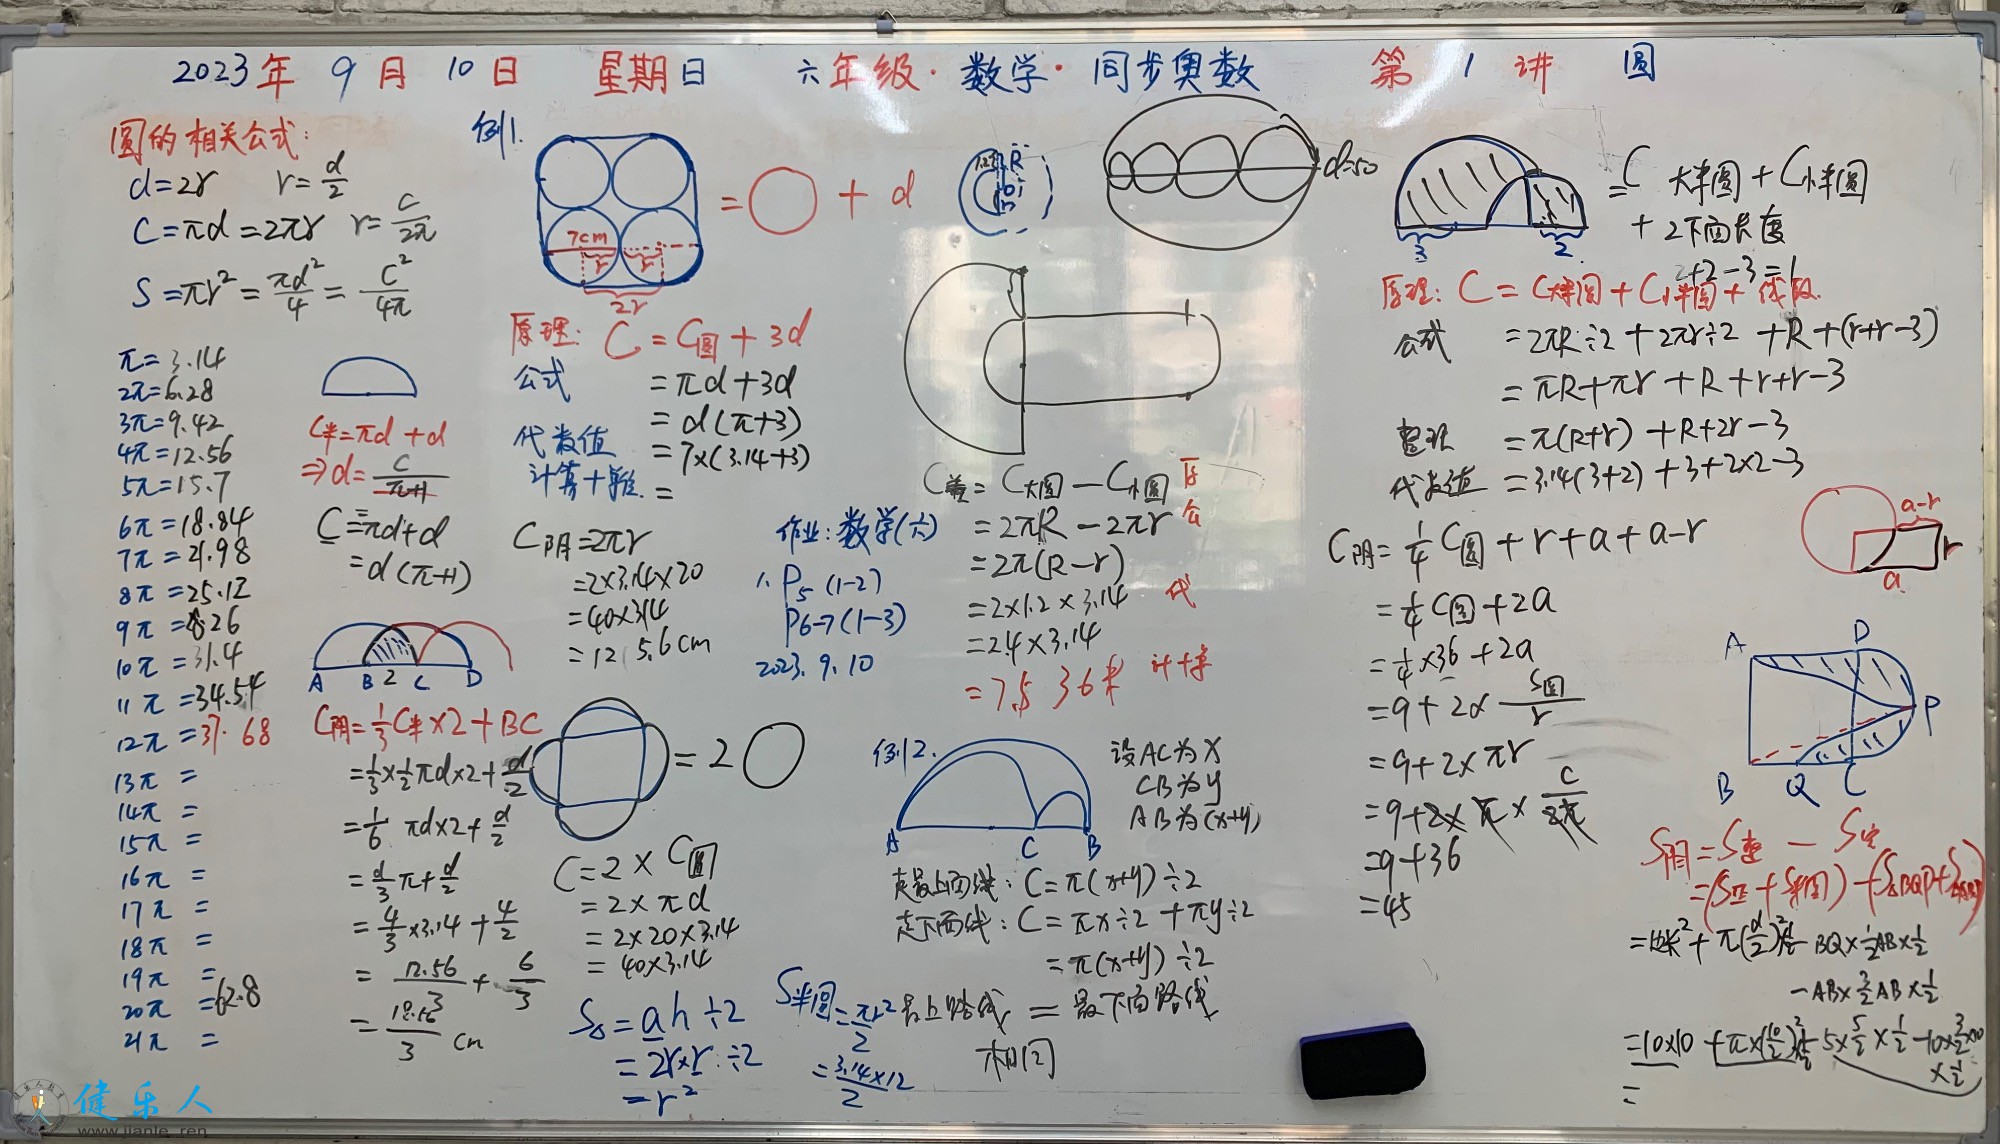 2023年 9月 10日 星期日 六年级·数学·同步奥数 第 1 讲 圆
圆的相关公式:
d=2r r=d/2
C=πd=2πr r=C/2π
S=πr²=πd²/4=C²/4π
π=3.14
2π=6.28
3π=9.42
4π=12.56
5π=15.7
6π=18.84
7π=21.98
8π=25.12
9π=28.26
10π=31.4
11π=34.54
12π=37.68
13π=
14π=
15π=
16π=
17π=
18π=
19π=
20π=62.8
21π=
C半=πd+d
⇒d=C/π+1
C=πd+d
=d(π+1)
A B 2 C D
C阴=1/3C半×2+BC
=1/3×1/2πd×2+d/2
=1/6 πd×2+d/2
=d/3π+d/2
=4/3×3.14+4/2
=12.56/3+6/3
=18.56/3 cm
例1.
7cm
r r
2r
= ○ + d
原理: C=C圆+3d
公式 =πd+3d
=d(π+3)
代数值 =7×(3.14+3)
计算+单位. =
C阴=2πr
=2×3.14×20
=40×3.14
=125.6cm
=2○
C=2×C圆
=2×πd
=2×20×3.14
=40×3.14
S△=ah÷2
=2r×r÷2
=r²
作业:数学(六)
1. P5 (1-2)
P6-7 (1-3)
2023.9.10
R
d=50
C差=C大圆-C小圆 原
=2πR-2πr 公
=2π(R-r)
=2×1.2×3.14 代
=2.4×3.14
=7.536米 计算
例2.
A C B
设AC为x
CB为y
AB为(x+y)
走最上面线:C=π(x+y)÷2
走下面线:C=πx÷2+πy÷2
=π(x+y)÷2
最上路线=最下面路线
相同
S半圆=πr²/2
=3.14×12/2
3 2
=C大半圆+C小半圆
+2下面长度
2+2-3=1
原理:C=C大半圆+C小半圆+线段.
公式 =2πR÷2+2πr÷2+R+(r+r-3)
=πR+πr+R+r+r-3
整理 =π(R+r)+R+2r-3
代数值 =3.14(3+2)+3+2×2-3
a-r
r
a
C阴=1/4C圆+r+a+a-r
=1/4C圆+2a
=1/4×36+2a
=9+2×S圆/r
=9+2×πr
=9+2×π×C/2π
=9+36
=45
A D
P
B Q C
S阴=S整-S空
=(S正+S半圆)-(S△BQP+S△ABP)
-BQ×1/2AB×1/2
-AB×3/2AB×1/2
=10×10+π×(10/2)²×1/2-5×5/2×1/2-10×3/2×10
×1/2
=
健乐人
www.jianle.ren